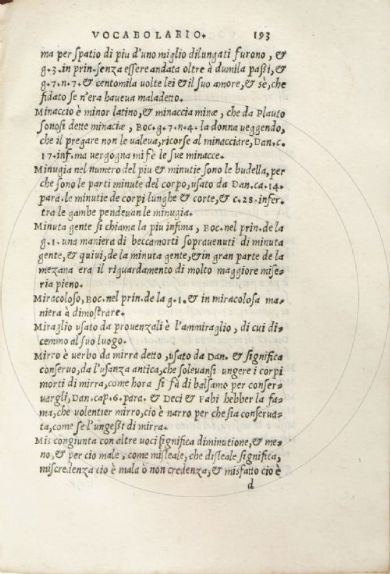 VOCABOLARIO. 193
ma per spatio di piu d'uno miglio dilungati furono, &
g.3. in prin. senza essere andata oltre à dumila passi, &
g.7.n.7. & centomila uolte lei & il suo amore, & sè, che
fidato se n'era haueua maladetto.
Minaccio è minor latino, & minaccia mine, che da Plauto
sonosi dette minacie, Boc.g.7.n.4. la donna ueggendo,
che il pregare non le ualeua, ricorse al minacciare, Dan.c.
17.inf. ma uergogna mi fè le sue minacce.
Minugia nel numero del piu & minutie sono le budella, per
che sono le parti minute del corpo, usato da Dan.ca.14.
para. le minutie de corpi lunghe & corte, & c.28. infer.
tra le gambe pendeuan le minugia.
Minuta gente si chiama la piu infima, Boc. nel prin. de la
g.1. una maniera di beccamorti soprauenuti di minuta
gente, & quiui, de la minuta gente, & in gran parte de la
mezana era il riguardamento di molto maggiore mise-
ria pieno.
Miracoloso, Boc. nel prin. de la g.1. & in miracolosa ma-
niera à dimostrare.
Miraglio usato da prouenzali è l'ammiraglio, di cui di-
cemmo al suo luogo.
Mirro è uerbo da mirra detto, usato da Dan. & significa
conseruo, da l'usanza antica, che soleuansi ungere i corpi
morti di mirra, come hora si fà di balsamo per conser-
uargli, Dan.cap.6.para. & Deci & Fabi hebber la fa-
ma, che volentier mirro, cio è narro per che sia conserua-
ta, come se l'ungessi di mirra.
Mis congiunta con altre uoci significa diminutione, & me-
no, & per cio male, come misleale, che disleale significa,
miscredenza cio è mala ò non credenza, & misfatto cio è
d